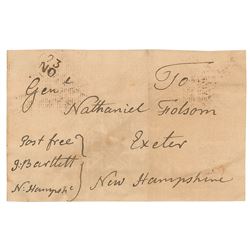 23
NO
To
Genl
Nathaniel Folsom
Post free
Exeter
J. Bartlett
N. Hampshe
New Hampshire